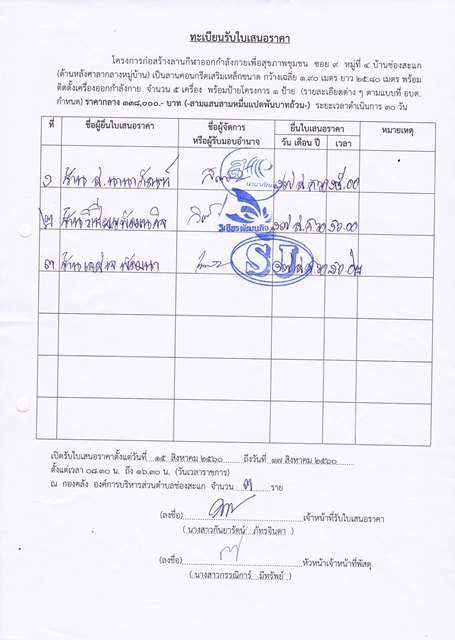 ทะเบียนรับใบเสนอราคา
โครงการก่อสร้างลานกีฬาออกกำลังกายเพื่อสุขภาพชุมชน ซอย ๙ หมู่ที่ ๔ บ้านช่องสะแก
(ด้านหลังศาลากลางหมู่บ้าน) เป็นลานคอนกรีตเสริมเหล็กขนาด กว้างเฉลี่ย ๑.๙๐ เมตร ยาว ๒๕.๘๐ เมตร พร้อม
ติดตั้งเครื่องออกกำลังกาย จำนวน ๕ เครื่อง พร้อมป้ายโครงการ ๑ ป้าย (รายละเอียดต่าง ๆ ตามแบบที่ อบต.
กำหนด) ราคากลาง ๓๓๘,๐๐๐.- บาท (-สามแสนสามหมื่นแปดพันบาทถ้วน-) ระยะเวลาดำเนินการ ๓๐ วัน
ที่ ชื่อผู้ยื่นใบเสนอราคา ชื่อผู้จัดการ หรือผู้รับมอบอำนาจ ยื่นใบเสนอราคา วัน เดือน ปี เวลา หมายเหตุ
๑ ร้าน ส.นานาภัณฑ์
๒ ร้านวิเชียรพัฒนกิจ วิเชียรพัฒนกิจ
๓ SU
เปิดรับใบเสนอราคาตั้งแต่วันที่ ๑๕ สิงหาคม ๒๕๖๐ ถึงวันที่ ๑๗ สิงหาคม ๒๕๖๐
ตั้งแต่เวลา ๐๘.๓๐ น. ถึง ๑๖.๓๐ น. (วันเวลาราชการ)
ณ กองคลัง องค์การบริหารส่วนตำบลช่องสะแก จำนวน ๓ ราย
(ลงชื่อ) เจ้าหน้าที่รับใบเสนอราคา
( นางสาวกันยารัตน์ ภัทรจินดา )
(ลงชื่อ) หัวหน้าเจ้าหน้าที่พัสดุ
( นางสาวกรรณิการ์ มีทรัพย์ )